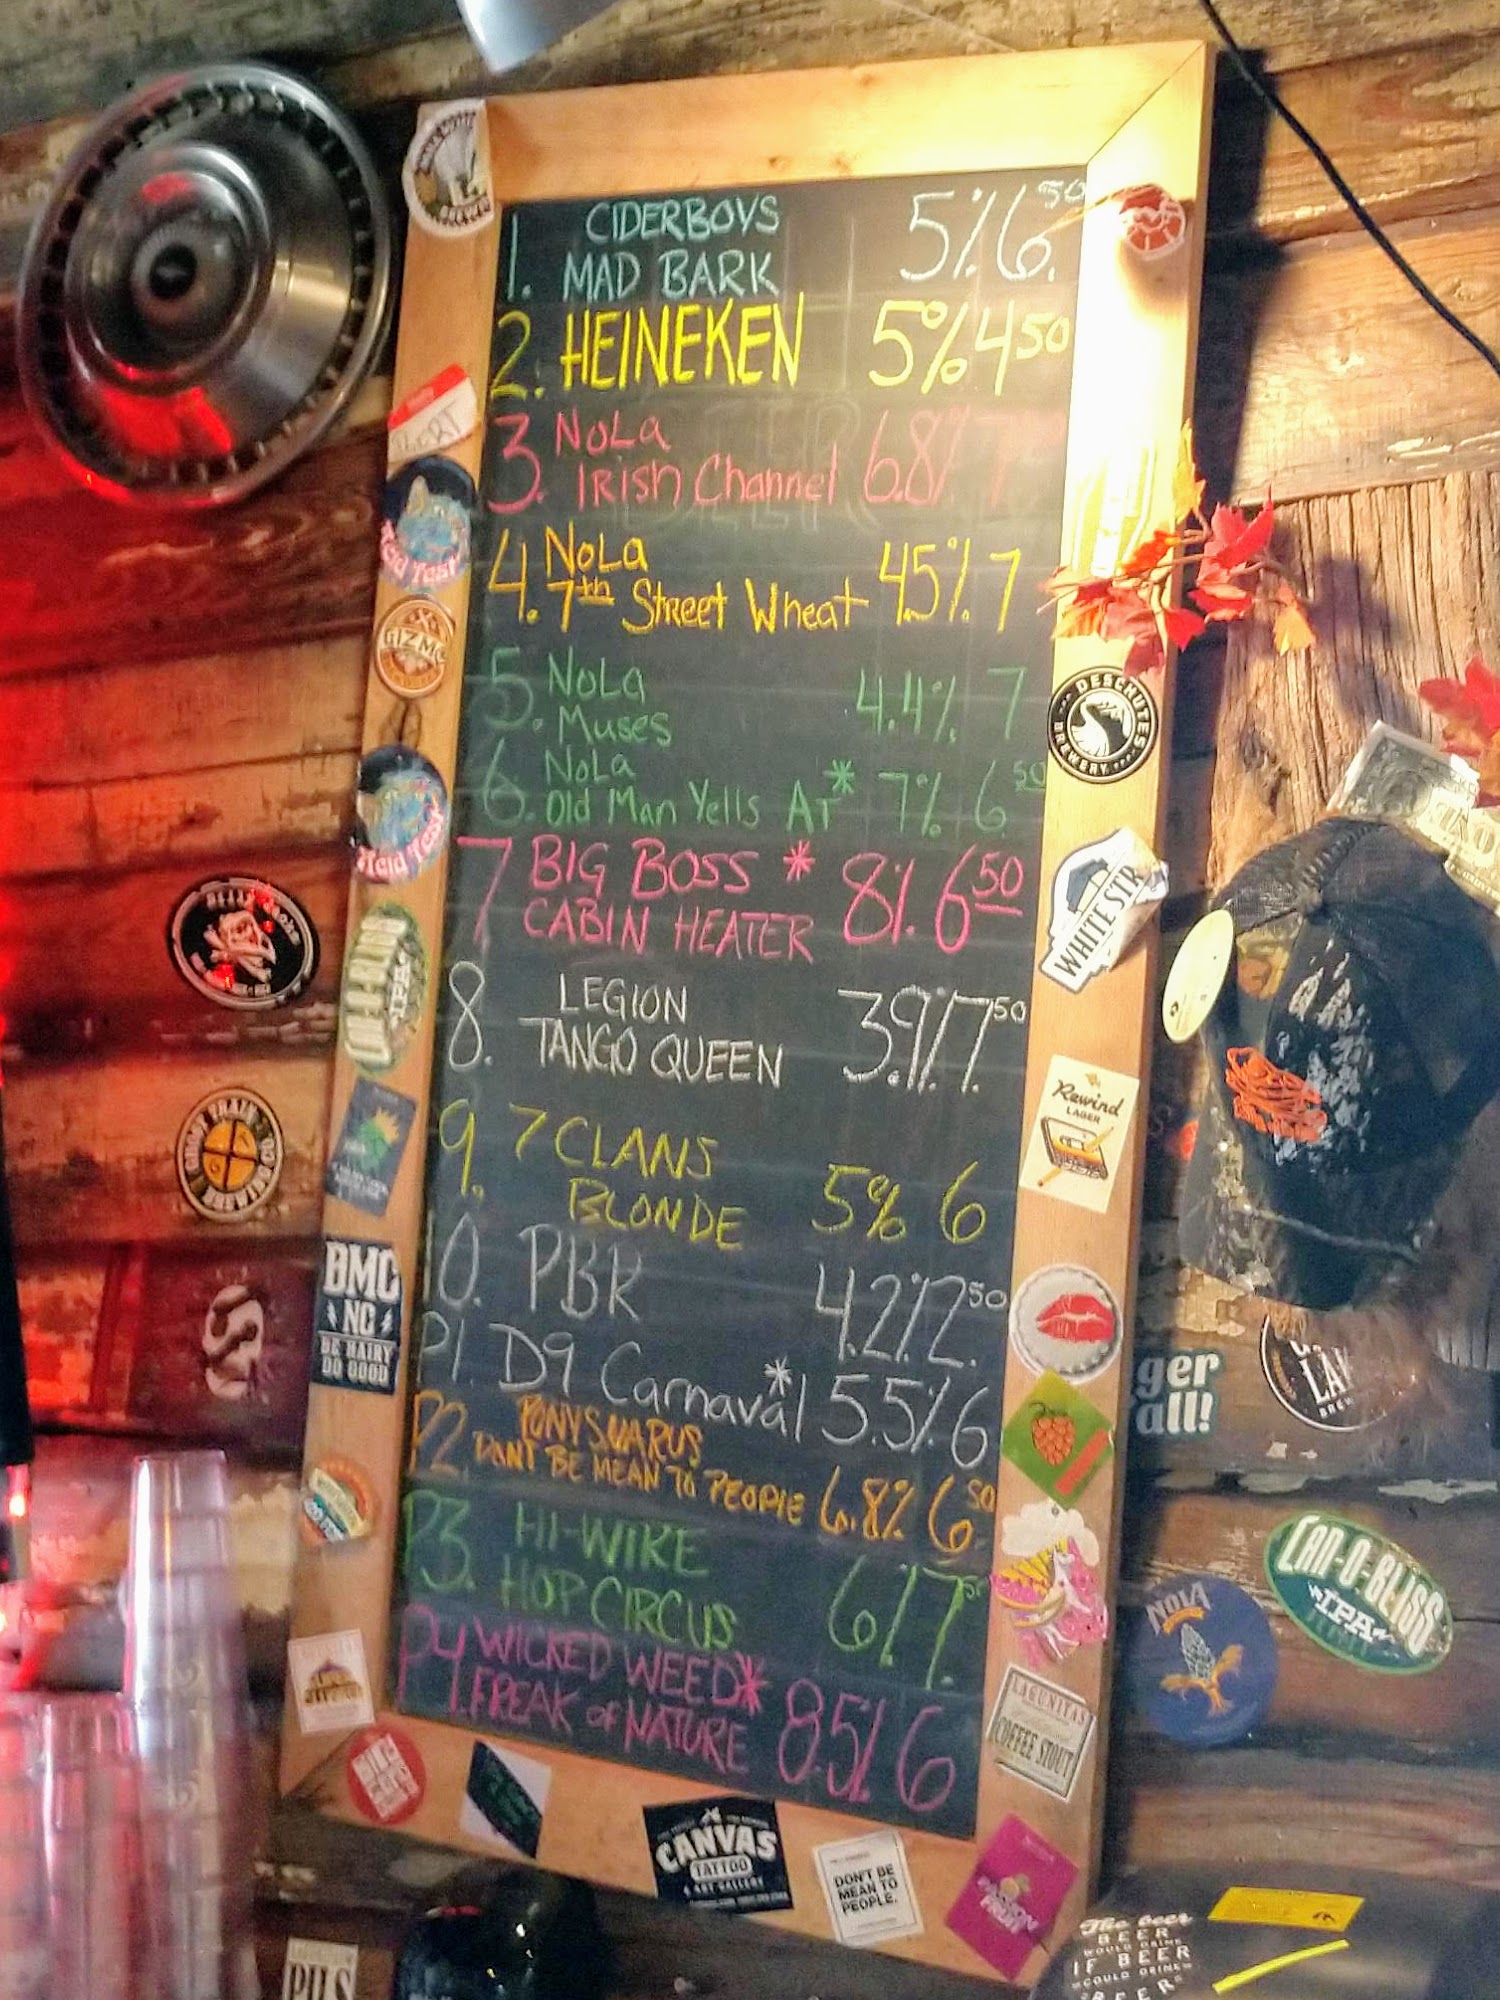 1. CIDERBOYS
MAD BARK 5% 6.50
2. HEINEKEN 5% 4 50
3. NOLA
IRISH CHANNEL 6.8% 7
4. NOLA
7th Street Wheat 4.5% 7
5. NOLA
Muses 4.4% 7
6. NOLA
Old Man Yells At * 7% 6 50
7 BIG BOSS *
CABIN HEATER 8% 6 50
8. LEGION
TANGO QUEEN 3.9% 7.50
9. 7 CLANS
BLONDE 5% 6
10. PBR 4.2% 2.50
P1. D9 Carnaval * 5.5% 6
P2 PONYSAURUS
DON'T BE MEAN TO PEOPLE 6.8% 6.50
P3. HI-WIRE
HOP CIRCUS 6% 7.50
P4. WICKED WEED *
FREAK OF NATURE 8.5% 6
Acid Test
GIZMO
Acid Test
IPA
CRAFT TRAIN
BREWING CO
BMC
NC
BE HAIRY
DO GOOD
DESCHUTES
BREWERY
WHITE STR
Rewind
LAGER
ger
all!
CAN-O-BLISS
IPA
NOLA
LAGUNITAS
COFFEE STOUT
CANVAS
TATTOO
& ART GALLERY
DON'T BE
MEAN TO
PEOPLE.
PASSION
FRUIT
PILS
The beer
BEER
WOULD DRINK
IF BEER
COULD DRINK
BEER